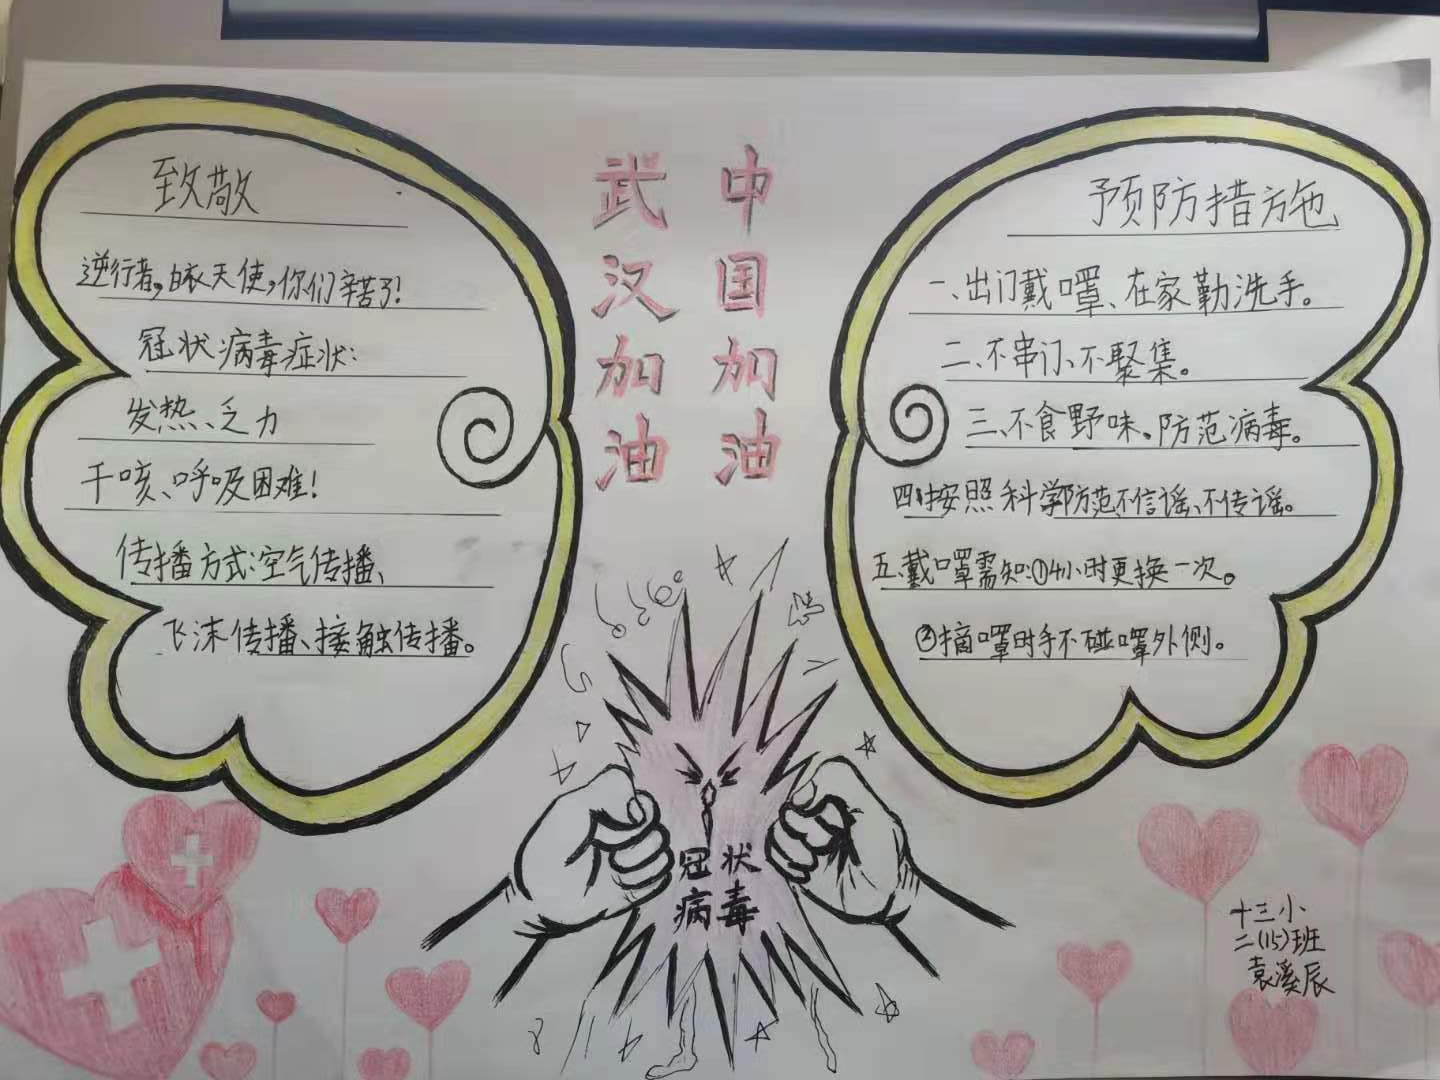 致敬
逆行者，白衣天使，你们辛苦了！
冠状病毒症状：
发热、乏力
干咳、呼吸困难！
传播方式：空气传播、
飞沫传播、接触传播。
武汉加油
中国加油
预防措施
一、出门戴口罩、在家勤洗手。
二、不串门、不聚集。
三、不食野味。防范病毒。
四、按照科学防范、不信谣、不传谣。
五、戴口罩需知：①4小时更换一次。
②摘罩时手不碰罩外侧。
冠状
病毒
十三小
二(15)班
袁溪辰